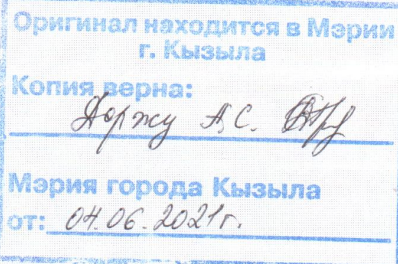 Оригинал находится в Мэрии
г. Кызыла
Копия верна:
Доржу А.С.
Мэрия города Кызыла
от: 04.06.2021г.